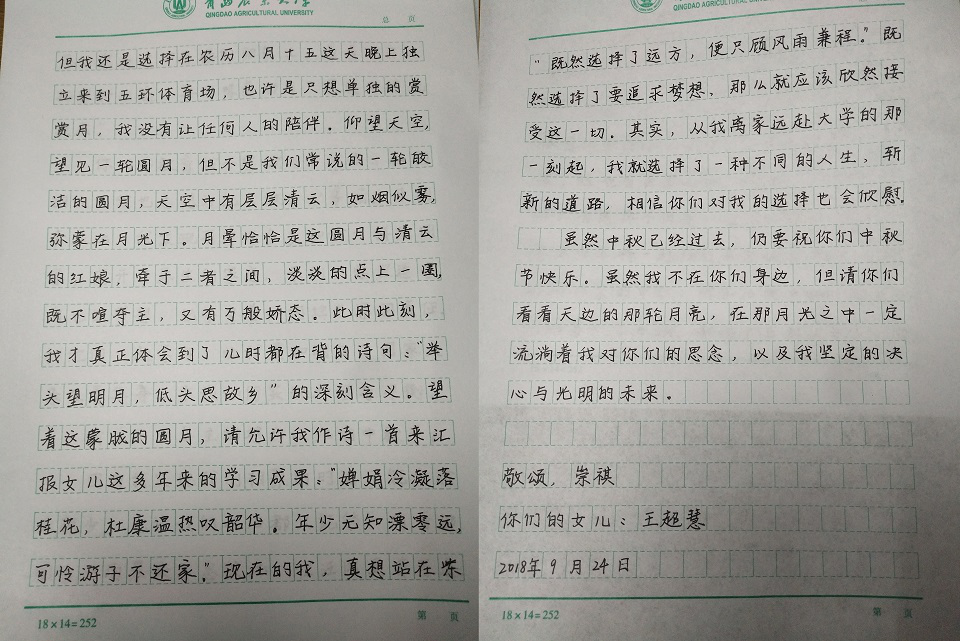 青岛农业大学
QINGDAO AGRICULTURAL UNIVERSITY
总 页
但我还是选择在农历八月十五这天晚上独
立来到五环体育场，也许是只想单独的赏
赏月，我没有让任何人的陪伴。仰望天空，
望见一轮圆月，但不是我们常说的一轮皎
洁的圆月，天空中有层层清云，如烟似雾，
弥蒙在月光下。月晕恰恰是这圆月与清云
的红娘，牵于二者之间，淡淡的点上一圈，
既不喧夺主，又有万般娇态。此时此刻，
我才真正体会到了儿时都在背的诗句："举
头望明月，低头思故乡"的深刻含义。望
着这蒙胧的圆月，请允许我作诗一首来汇
报女儿这多年来的学习成果："婵娟冷凝落
桂花，杜康温热叹韶华。年少元知漂零远，
可怜游子不还家。"现在的我，真想站在崇
18×14=252
第 页
QINGDAO AGRICULTURAL UNIVERSITY
总 页
"既然选择了远方，便只顾风雨兼程。"既
然选择了要追求梦想，那么就应该欣然接
受这一切。其实，从我离家远赴大学的那
一刻起，我就选择了一种不同的人生，崭
新的道路，相信你们对我的选择也会欣慰。
虽然中秋已经过去，仍要祝你们中秋
节快乐。虽然我不在你们身边，但请你们
看看天边的那轮月亮，在那月光之中一定
流淌着我对你们的思念，以及我坚定的决
心与光明的未来。
敬颂，崇祺
你们的女儿：王超慧
2018年9月24日
18×14=252
第 页